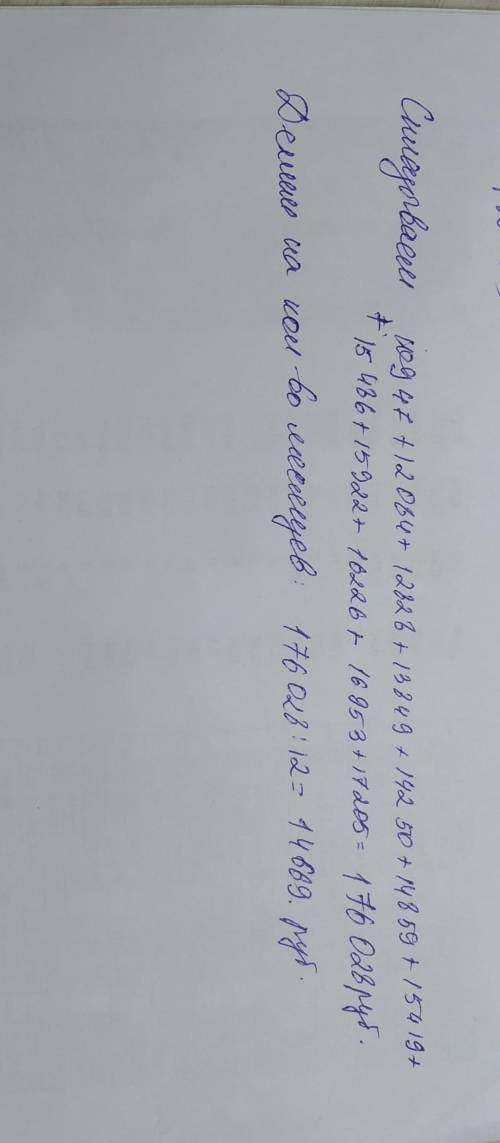 Складываем 10947 + 12064 + 12826 + 13849 + 14250 + 14859 + 15419 +
+ 15436 + 15922 + 16226 + 16953 + 17285 = 176028 руб.
Делим на кол-во месяцев: 176028 : 12 = 14669. руб.